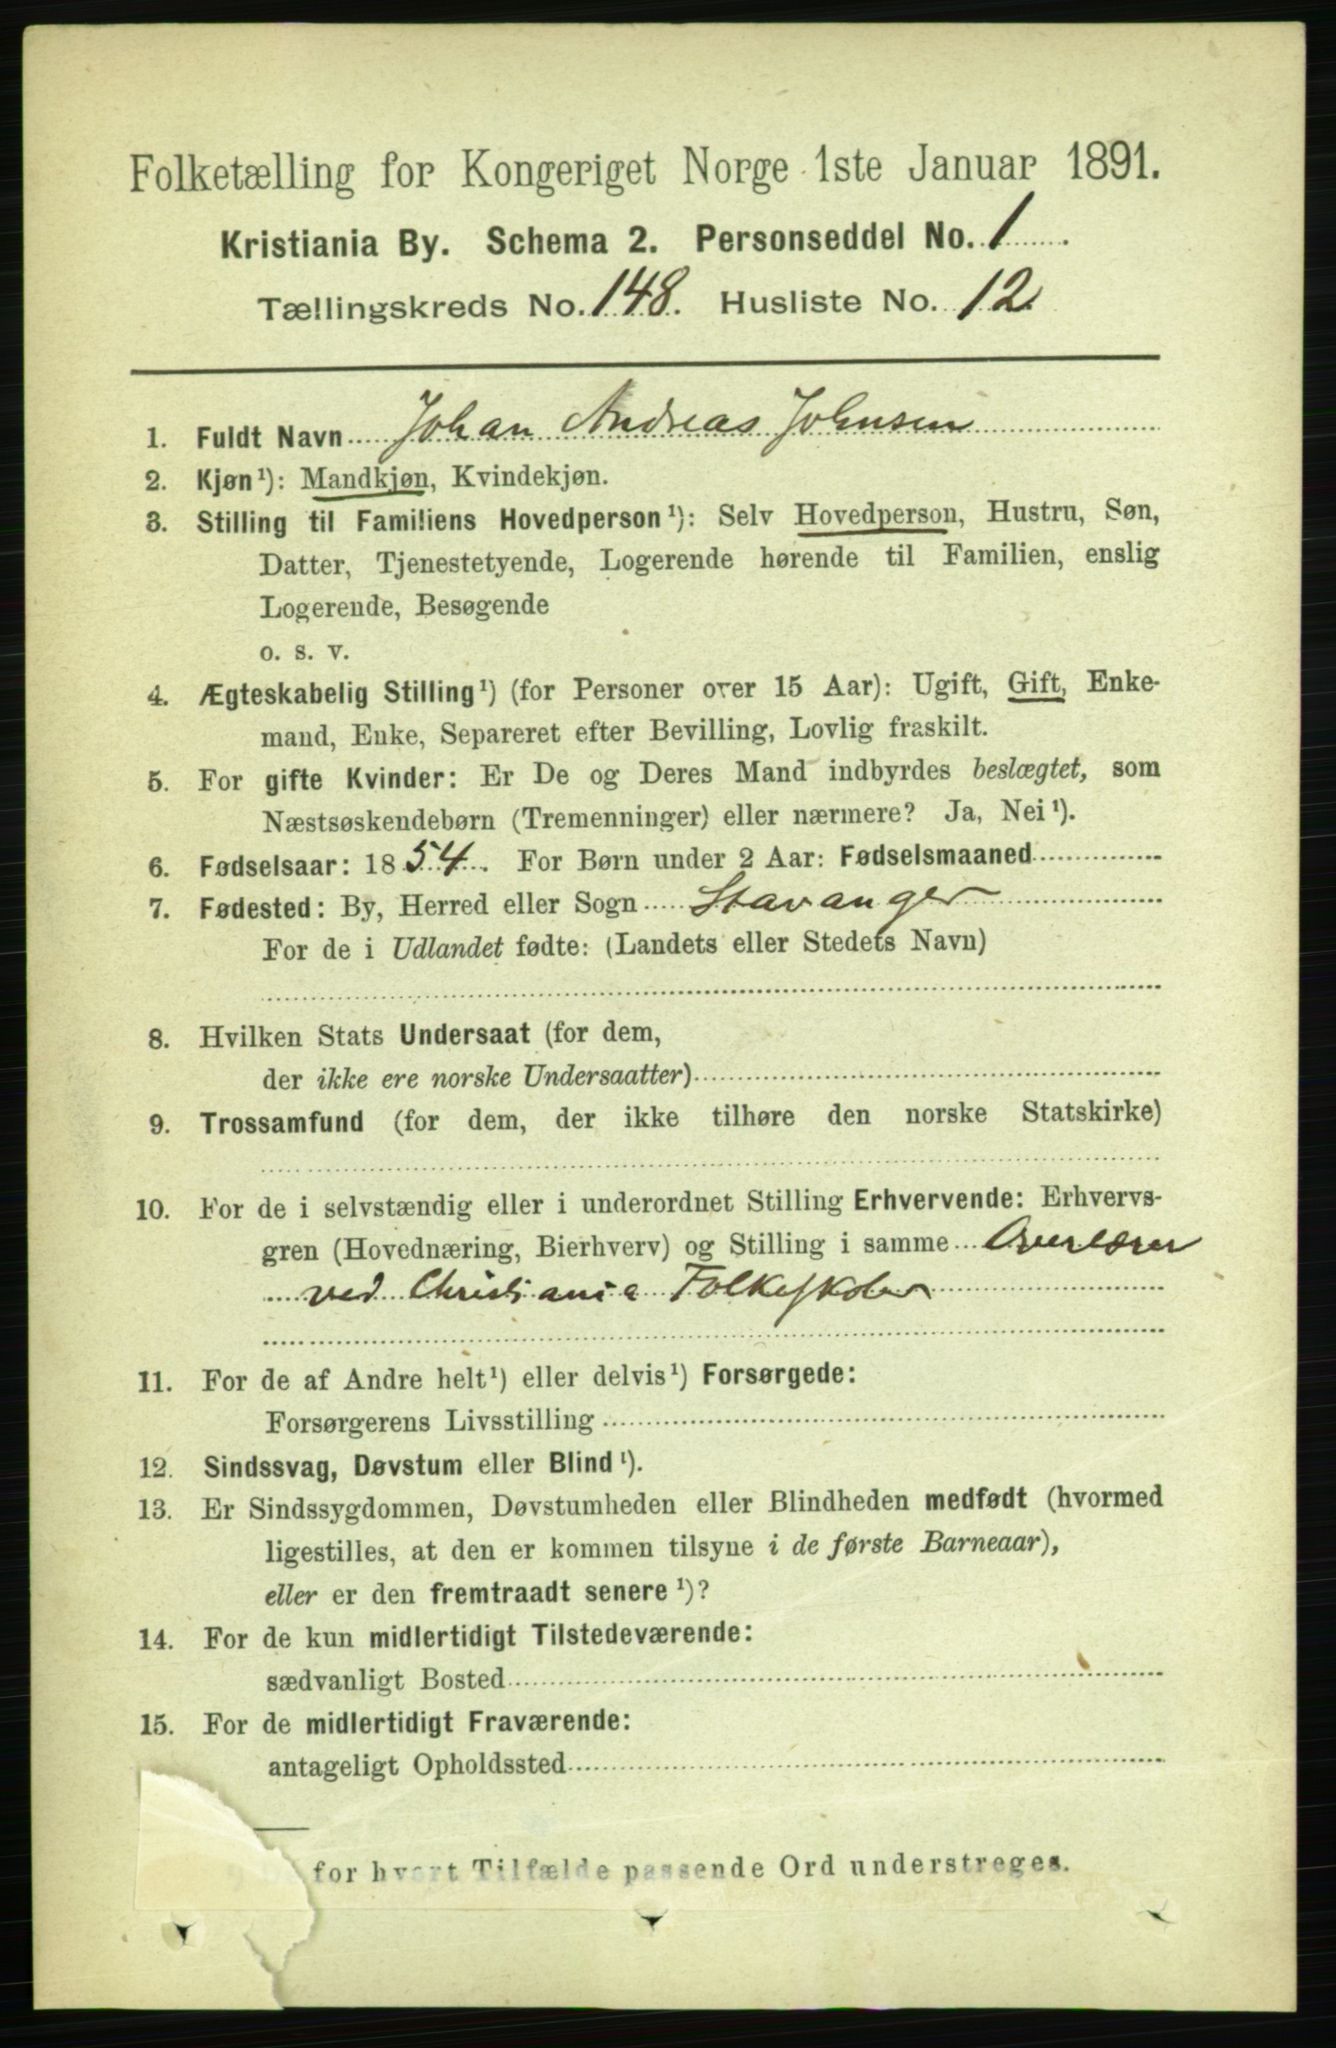 Folketælling for Kongeriget Norge 1ste Januar 1891.
Kristiania By. Schema 2. Personseddel No. 1
Tællingskreds No. 148. Husliste No. 12
1. Fuldt Navn Johan Andreas Johnsen
2. Kjøn¹): Mandkjøn, Kvindekjøn.
3. Stilling til Familiens Hovedperson¹): Selv Hovedperson, Hustru, Søn,
Datter, Tjenestetyende, Logerende hørende til Familien, enslig
Logerende, Besøgende
o. s. v.
4. Ægteskabelig Stilling¹) (for Personer over 15 Aar): Ugift, Gift, Enke-
mand, Enke, Separeret efter Bevilling, Lovlig fraskilt.
5. For gifte Kvinder: Er De og Deres Mand indbyrdes beslægtet, som
Næstsøskendebørn (Tremenninger) eller nærmere? Ja, Nei¹).
6. Fødselsaar: 1854. For Børn under 2 Aar: Fødselsmaaned
7. Fødested: By, Herred eller Sogn Stavanger
For de i Udlandet fødte: (Landets eller Stedets Navn)
8. Hvilken Stats Undersaat (for dem,
der ikke ere norske Undersaatter)
9. Trossamfund (for dem, der ikke tilhøre den norske Statskirke)
10. For de i selvstændig eller i underordnet Stilling Erhvervende: Erhvervs-
gren (Hovednæring, Bierhverv) og Stilling i samme Overlærer
ved Christiania Folkeskoler
11. For de af Andre helt¹) eller delvis¹) Forsørgede:
Forsørgerens Livsstilling
12. Sindssvag, Døvstum eller Blind¹).
13. Er Sindssygdommen, Døvstumheden eller Blindheden medfødt (hvormed
ligestilles, at den er kommen tilsyne i de første Barneaar),
eller er den fremtraadt senere¹)?
14. For de kun midlertidigt Tilstedeværende:
sædvanligt Bosted
15. For de midlertidigt Fraværende:
antageligt Opholdssted
for hvert Tilfælde passende Ord understreges.